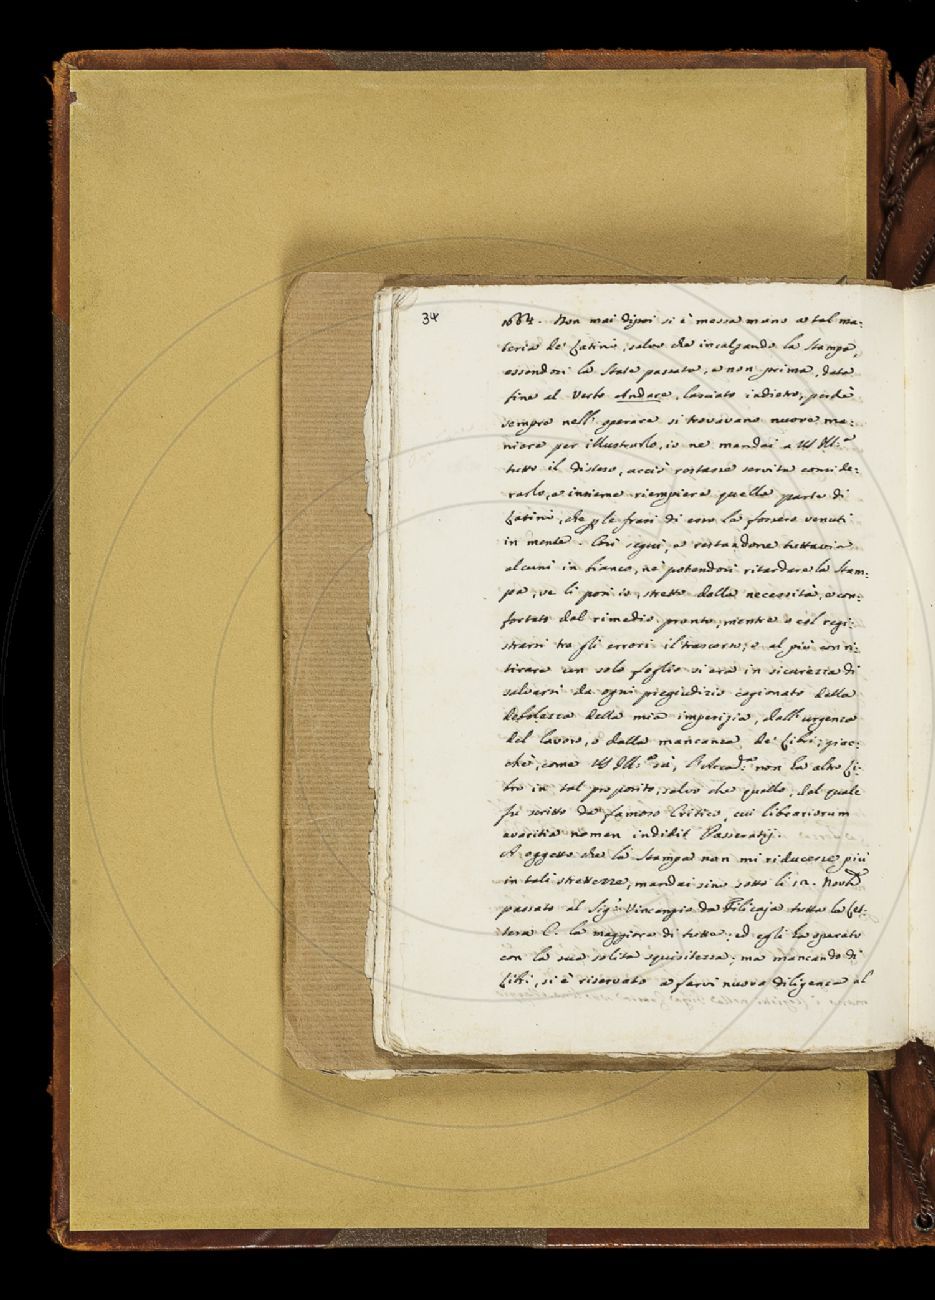 34
1684. Non mai dipoi si è messa mano a tal ma:
teria de' Latini, salvo che incalzando la stampa,
essendosi la state passata, e non prima, dato
fine al Verbo Andare, lasciato indietro, perchè
sempre nell' operare si trovavano nuove ma:
niere per illustrarlo, io ne mandai a VS Ill:ma
tutto il disteso, acciò restasse servita conside:
rarlo, e insieme riempiere quella parte di
Latini, che p le frasi di esso la fossero venuti
in mente. Così seguì, e restandone tuttavia
alcuni in bianco, nè potendosi ritardare la stam:
pa, ve li posi io, stretto dalla necessità, e con:
fortato dal rimedio pronto, mentre o col regi:
strarsi tra gli errori il trascorso, e al più con ri:
tirare un solo foglio si era in sicurezza di
salvarsi da ogni pregiudizio cagionato dalla
debolezza della mia imperizia, dall' urgenza
del lavoro, o dalla mancanza de' Libri; giac:
chè, come VS Ill:ma sa, l'Accad:a non ha altro Li:
bro in tal proposito, salvo che quello, del quale
fu scritto da famoso Critico, cui librariorum
avaritia nomen indidit Passeratij.
A oggetto che la stampa non mi riducesse più
in tali strettezze, mandai sino sotto li 12. Novb
passato al Sig: Vincenzio da Filicaja tutta la Let:
tera C. la maggiore di tutte; ed egli ha operato
con la sua solita squisitezza; ma mancando di
Libri, si è riservato a farvi nuova diligenza al